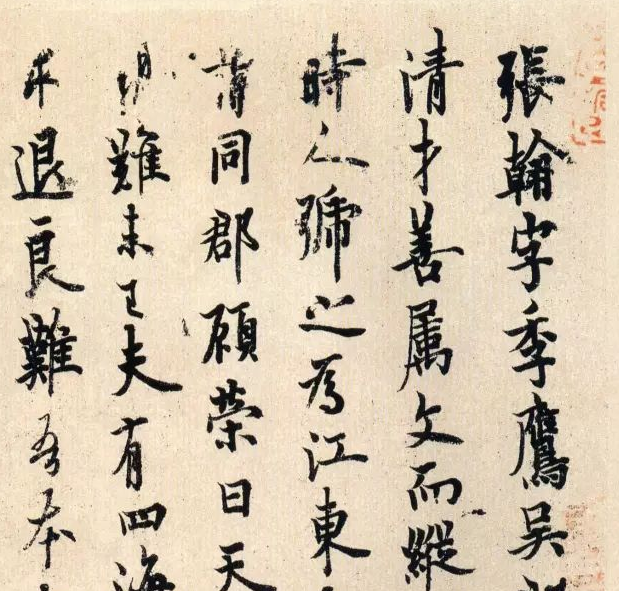 張翰字季鷹吳
清才善属文而縱
時人號之為江東
同郡顧榮曰天
難未已夫有四海
退良難吾本